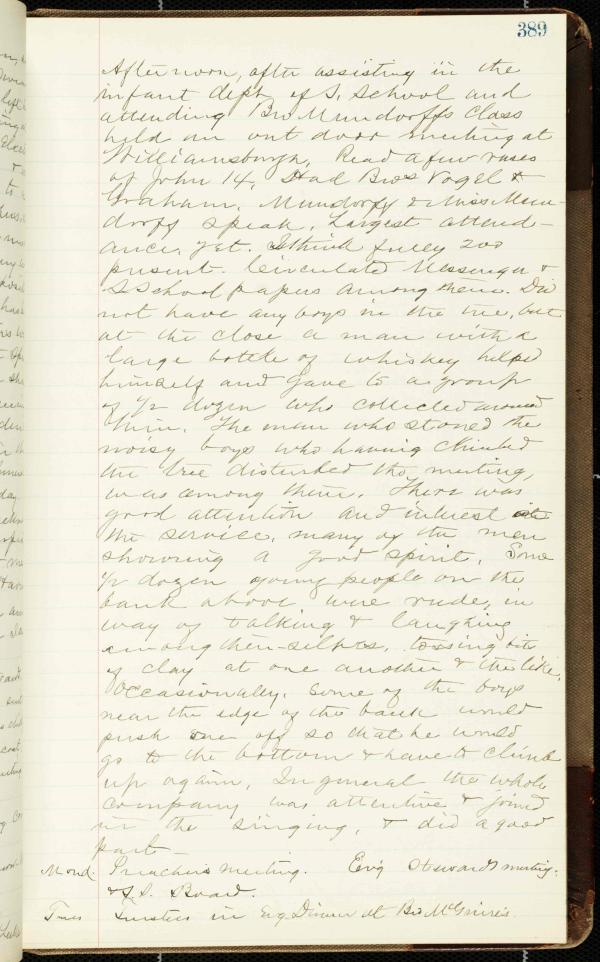 389
Afternoon, after assisting in the
infant dept of S. School and
attending Bro Mundorffs class
held an out door meeting at
Williamsburgh, Read a few verses
of John 14, Had Bros Vogel &
Graham, Mundorff & Miss Mun-
dorff speak, Largest attend-
ance, yet. I think fully 200
present. Circulated Messenger &
S School papers among them. Did
not have any boys in the tree, but
at the close a man with a
large bottle of whiskey helped
himself and gave to a group
of ½ dozen who collected around
him. The man who stoned the
noisy boys who having climbed
the tree disturbed the meeting,
was among them. There was
good attention and interest in
the service, many of the men
showing a good spirit. Some
½ dozen young people on the
bank above were rude, in
way of talking & laughing
among them-selves, tossing bits
of clay at one another & the like,
occasionally. Some of the boys
near the edge of the bank would
push one off so that he would
go to the bottom & have to climb
up again, In general the whole
company was attentive & joined
in the singing, & did a good
part
Mond. Preachers meeting. Ev'g Stewards meeting.
& S. S. Board.
Tues Trustees in Evg Dinner at Bro McGuire's.